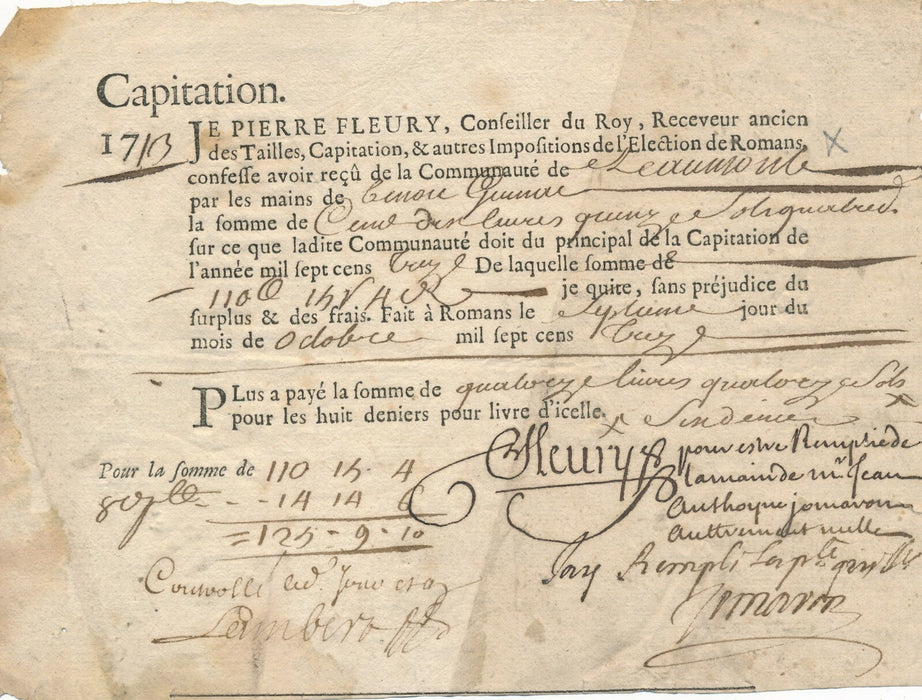 Capitation.
1713
JE PIERRE FLEURY, Conseiller du Roy, Receveur ancien
des Tailles, Capitation, & autres Impositions de l'Election de Romans,
confesse avoir reçû de la Communauté de Beaumont
par les mains de
la somme de Cent dix livres quinze Sols quatre d.
sur ce que ladite Communauté doit du principal de la Capitation de
l'année mil sept cens treize De laquelle somme de
110 15 4 je quite, sans préjudice du
surplus & des frais. Fait à Romans le septieme jour du
mois de Octobre mil sept cens treize
PLus a payé la somme de quatorze livres quatorze Sols
pour les huit deniers pour livre d'icelle. x Six deniers x
Fleury pour estre Remplie de
Pour la somme de 110 15 4 la main de mr Jean
14 14 6 Anthoyne jomaron
= 125 - 9 - 10 autrement nulle
Jay Rempli
Controllé
Lambert jomaron